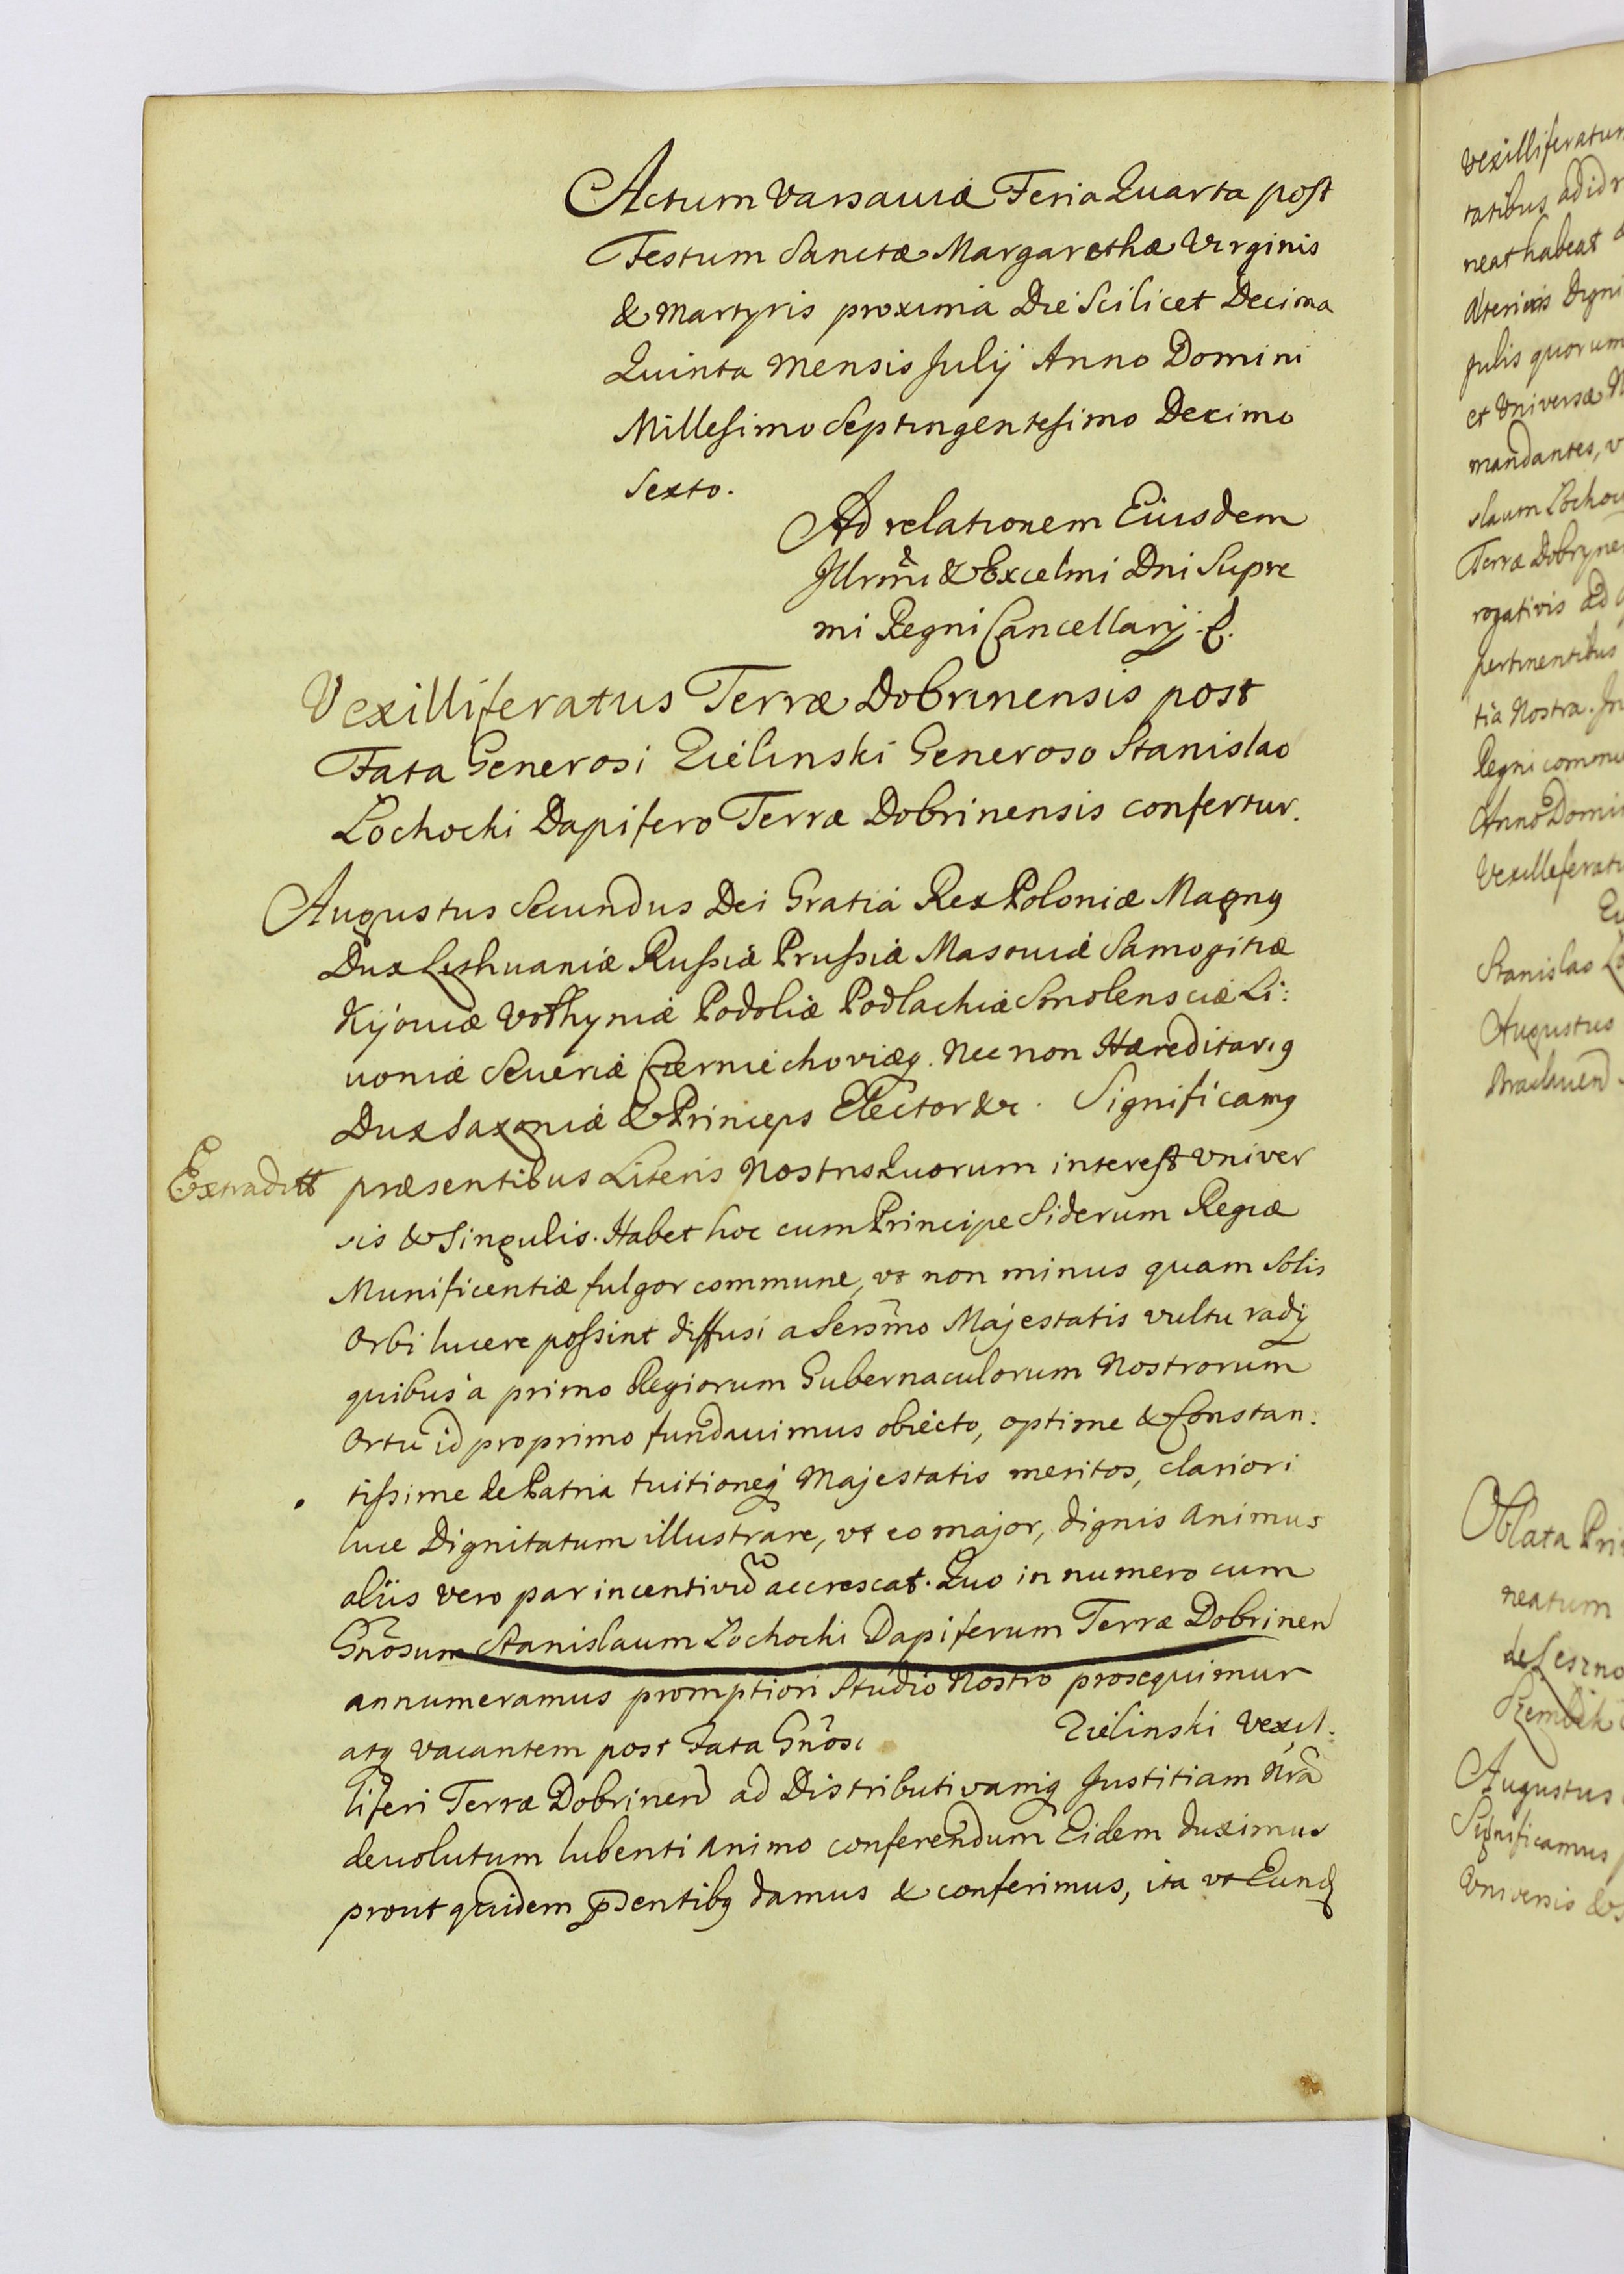 Actum Varsaviæ Feria Quarta post
Festum Sanctæ Margarethæ Virginis
& Martyris proxima Die Scilicet Decima
Quinta Mensis Julij Anno Domini
Millesimo Septingentesimo Decimo
Sexto.
Ad relationem Eiusdem
Illrmi & Excelmi Dni Supre
mi Regni Cancellarij
Vexilliferatus Terræ Dobrinensis post
Fata Generosi Zielinski Generoso Stanislao
Łochocki Dapifero Terræ Dobrinensis confertur.
Augustus Secundus Dei Gratia Rex Poloniæ Magnq
Dux Lithuaniæ Russiæ Prussiæ Masouiæ Samogitiæ
Kijouiæ Volhyniæ Podoliæ Podlachiæ Smolensciæ Li:
uoniæ Seueriæ Czerniechoviæq. Nec non Hæreditariq
Dux Saxoniæ & Princeps Elector &c. Significamq
Extraditt præsentibus Literis Nostris Quorum interest vniver
sis & Singulis. Habet hoc cum Principe Siderum Regiæ
Munificentiæ fulgor commune, vt non minus quam Solis
Orbi lucere possint diffusi a Sersmo Majestatis vultu radij
quibus a primo Regiorum Gubernaculorum Nostrorum
Ortu id pro primo fundauimus obiecto, optime & Constan:
tissime de Patria tuitioneq Majestatis meritos, clariori
luce Dignitatum illustrare, vt eo major, dignis animus
aliis vero par incentivũ accrescat. Quo in numero cum
Gnõsum Stanislaum Łochocki Dapiferum Terræ Dobrinen
annumeramus promptiori Studio Nostro prosequimur
atq vacantem post Fata Gnõsi Zielinski Vexil:
liferi Terræ Dobrinen ad Distributivamq Justitiam Nrã
deuolutum lubenti animo conferendum Eidem duximus
prout quidem pñtibq damus & conferimus, ita vt Eund
vexilliferatum
tatibus ad id
neat habeat
Digni
quorum
et Vniversæ
mandantes, v
slaum Łochoc
Terræ Dobryne
rogativis ad
pertinentibus
tia Nostra. In
Regni commu
Anno Domi
Vexilleferatu
Stanislao Ło
Augustus
Braclauen
Oblata Pri
neatum
Szembek
Augustus
Significamus
Vniversis &